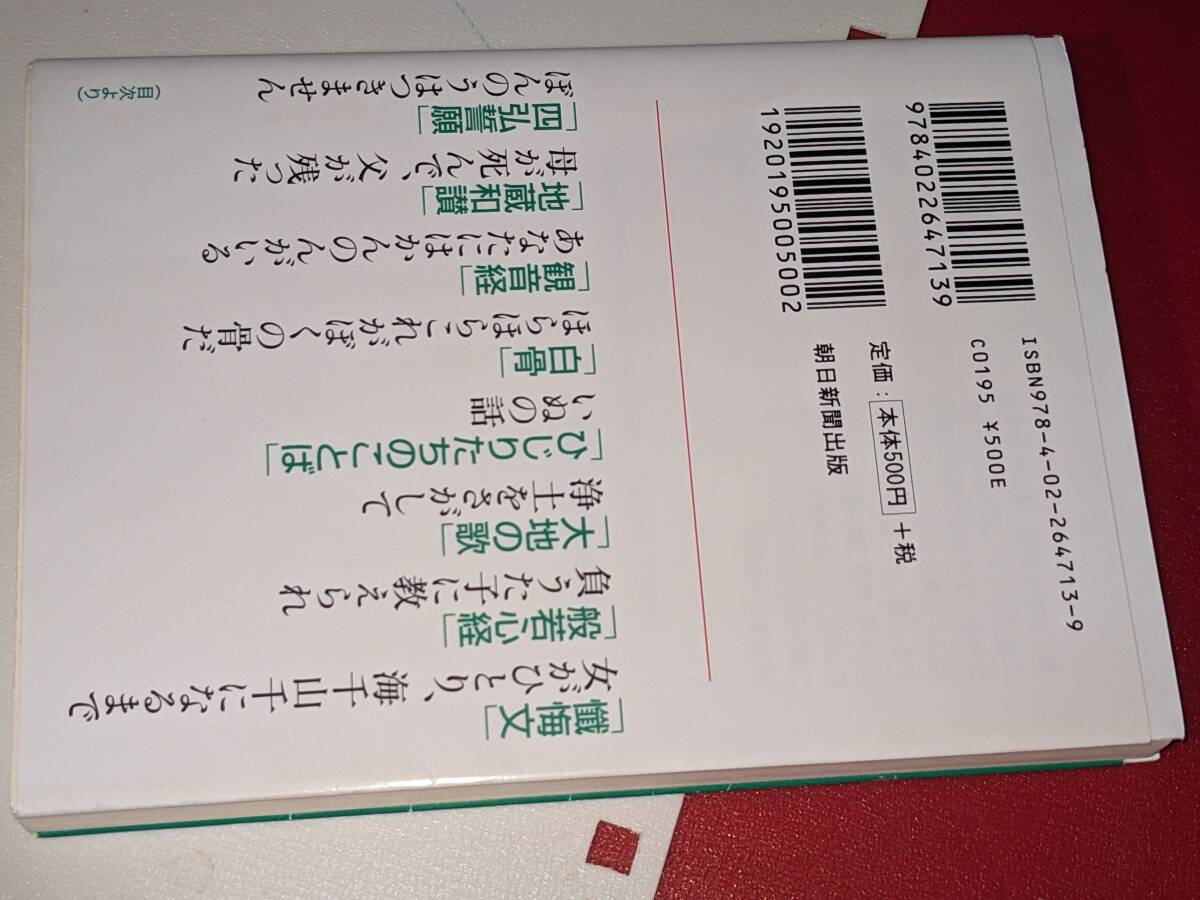 9784022647139
1920195005002
ISBN978-4-02-264713-9
C0195 ¥500E
定価:本体500円+税
朝日新聞出版
「懺悔文」
女がひとり、海千山千になるまで
「般若心経」
負うた子に教えられ
「大地の歌」
浄土をさがして
「ひじりたちのことば」
いぬの話
「白骨」
ほらほら、これがぼくの骨だ
「観音経」
あなたにはかんのんがいる
「地蔵和讃」
母が死んで、父が残った
「四弘誓願」
ぼんのうはつきません
(目次より)